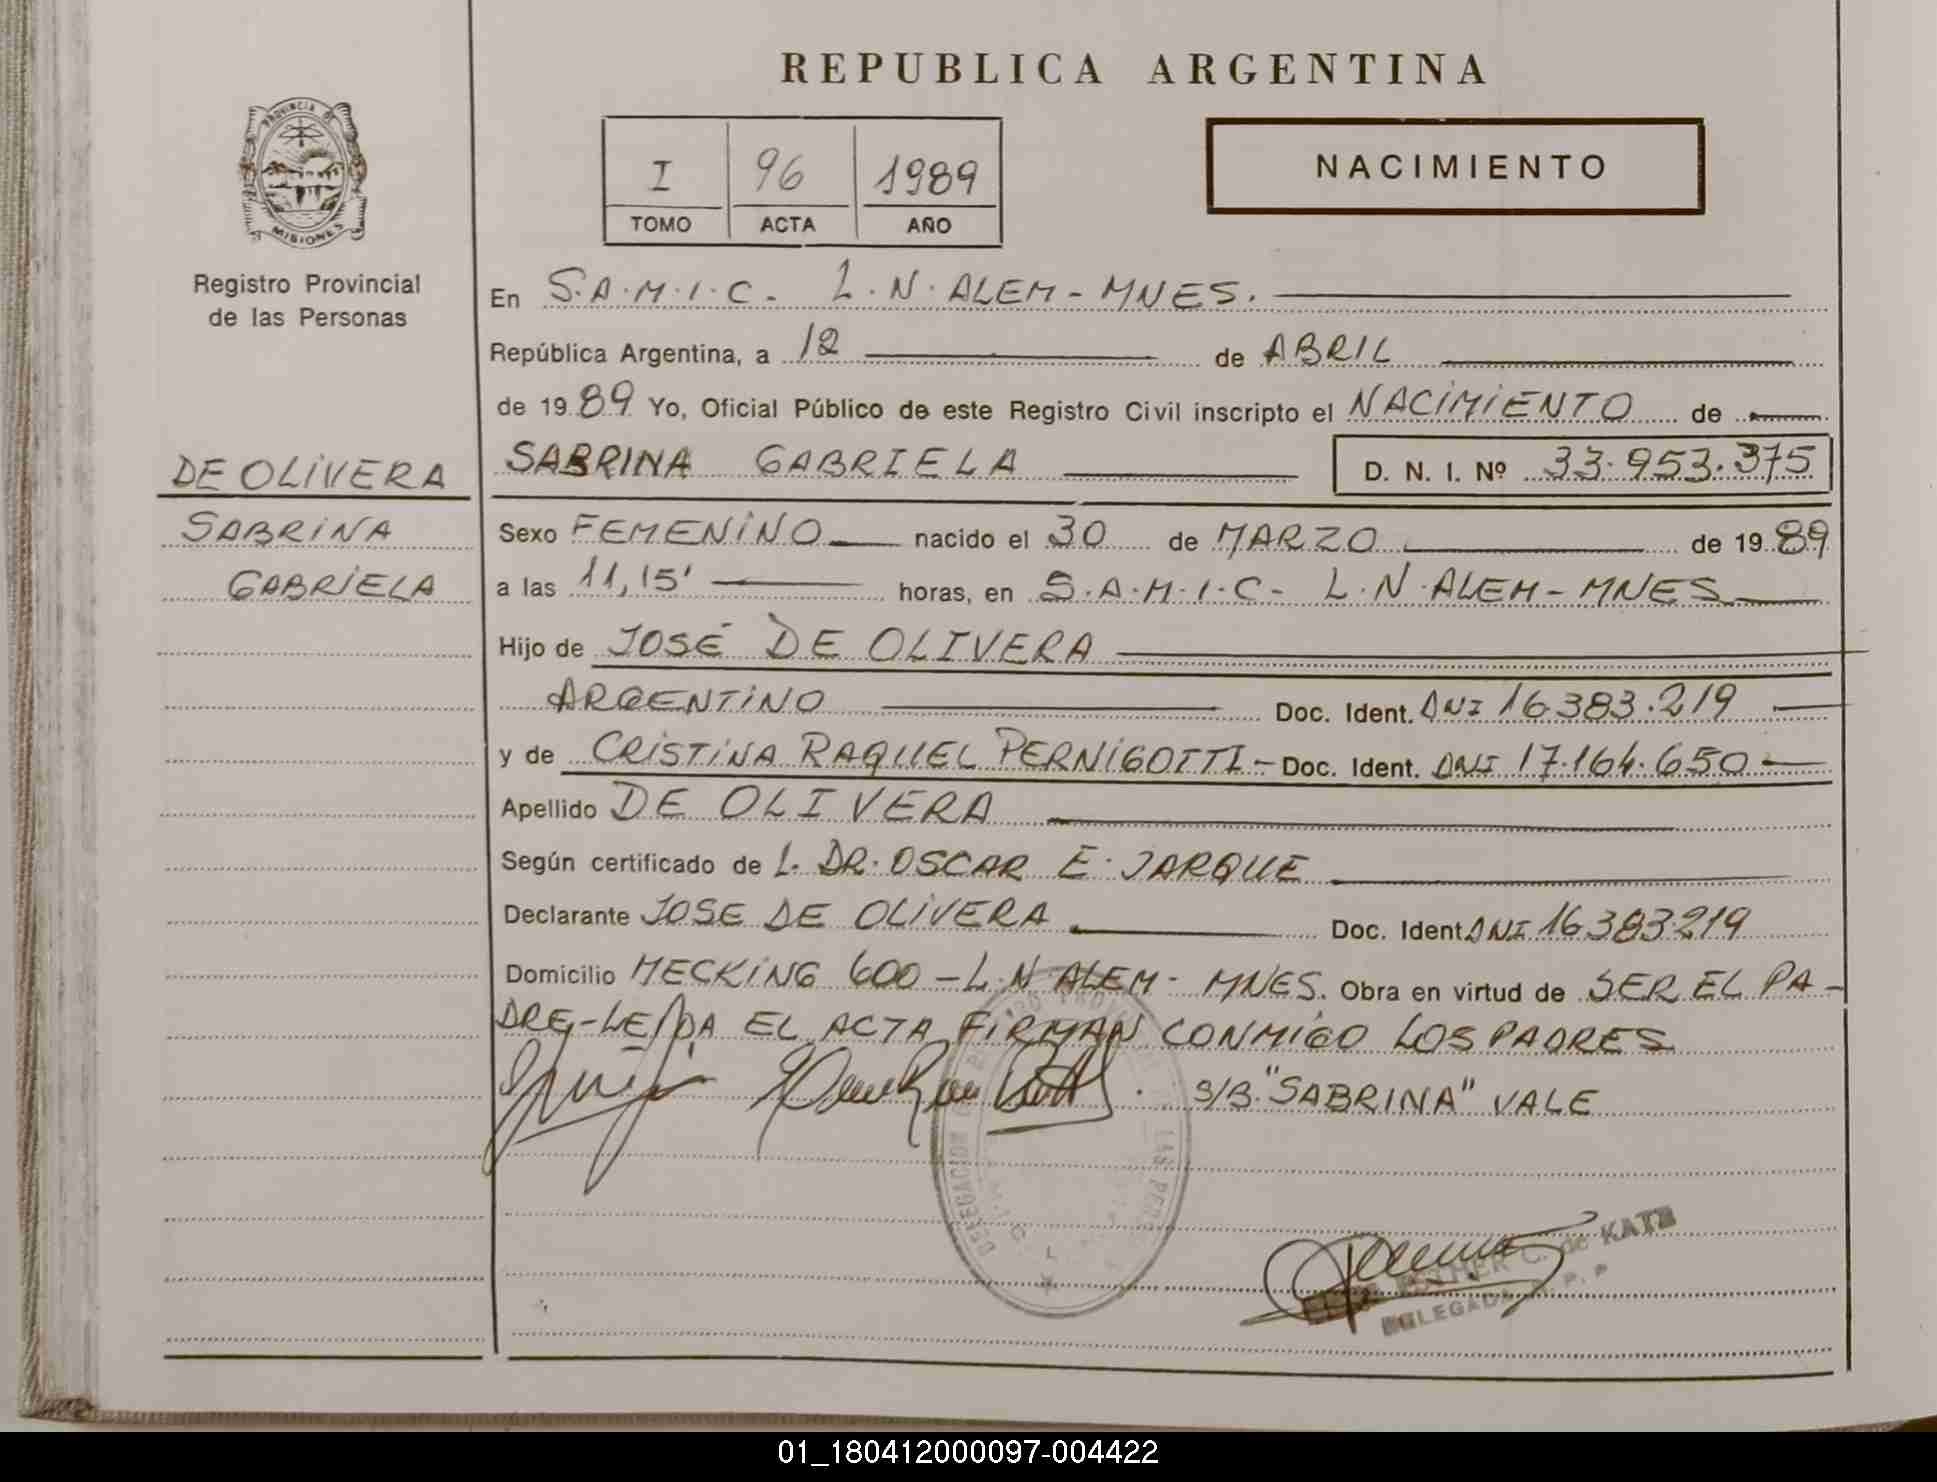 REPUBLICA ARGENTINA
PROVINCIA DE
MISIONES
Registro Provincial
de las Personas
I 96 1989
TOMO ACTA AÑO
NACIMIENTO
En S.A.M.I.C. L.N.ALEM-MNES.
República Argentina, a 12 de ABRIL
de 1989 Yo, Oficial Público de este Registro Civil inscripto el NACIMIENTO de
SABRINA GABRIELA D. N. I. Nº 33.953.375
DE OLIVERA
SABRINA
GABRIELA
Sexo FEMENINO nacido el 30 de MARZO de 1989
a las 11,15' horas, en S.A.M.I.C- L.N.ALEM-MNES
Hijo de JOSÉ DE OLIVERA
ARGENTINO Doc. Ident. DNI 16.383.219
y de CRISTINA RAQUEL PERNIGOTTI- Doc. Ident. DNI 17.164.650
Apellido DE OLIVERA
Según certificado de L. DR. OSCAR E. JARQUE
Declarante JOSE DE OLIVERA Doc. Ident DNI 16.383.219
Domicilio MECKING 600-L.N ALEM- MNES. Obra en virtud de SER EL PA-
DRE-LEIDA EL ACTA FIRMAN CONMIGO LOS PADRES
S/B."SABRINA" VALE
DELEGACION
LAS PERS
ESTHER C. de KATZ
DELEGADA R. P. P
01_180412000097-004422